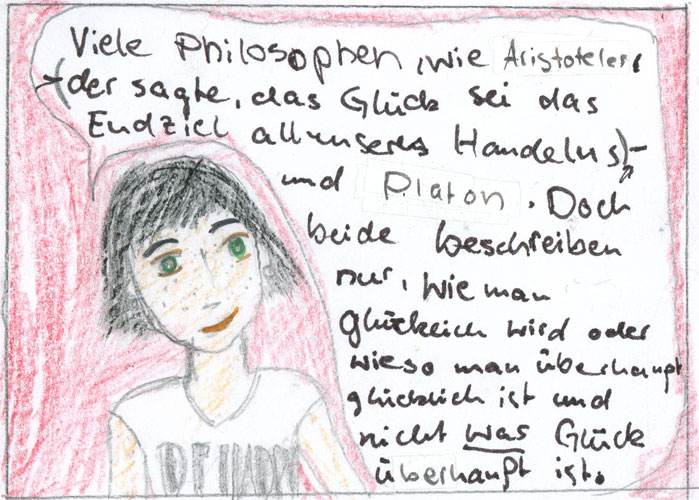 Viele Philosophen, wie Aristoteles,
-(der sagte, das Glück sei das
Endziel all unseres Handelns)-
und Platon. Doch
beide beschreiben
nur, wie man
glücklich wird oder
wieso man überhaupt
glücklich ist und
nicht was Glück
überhaupt ist.